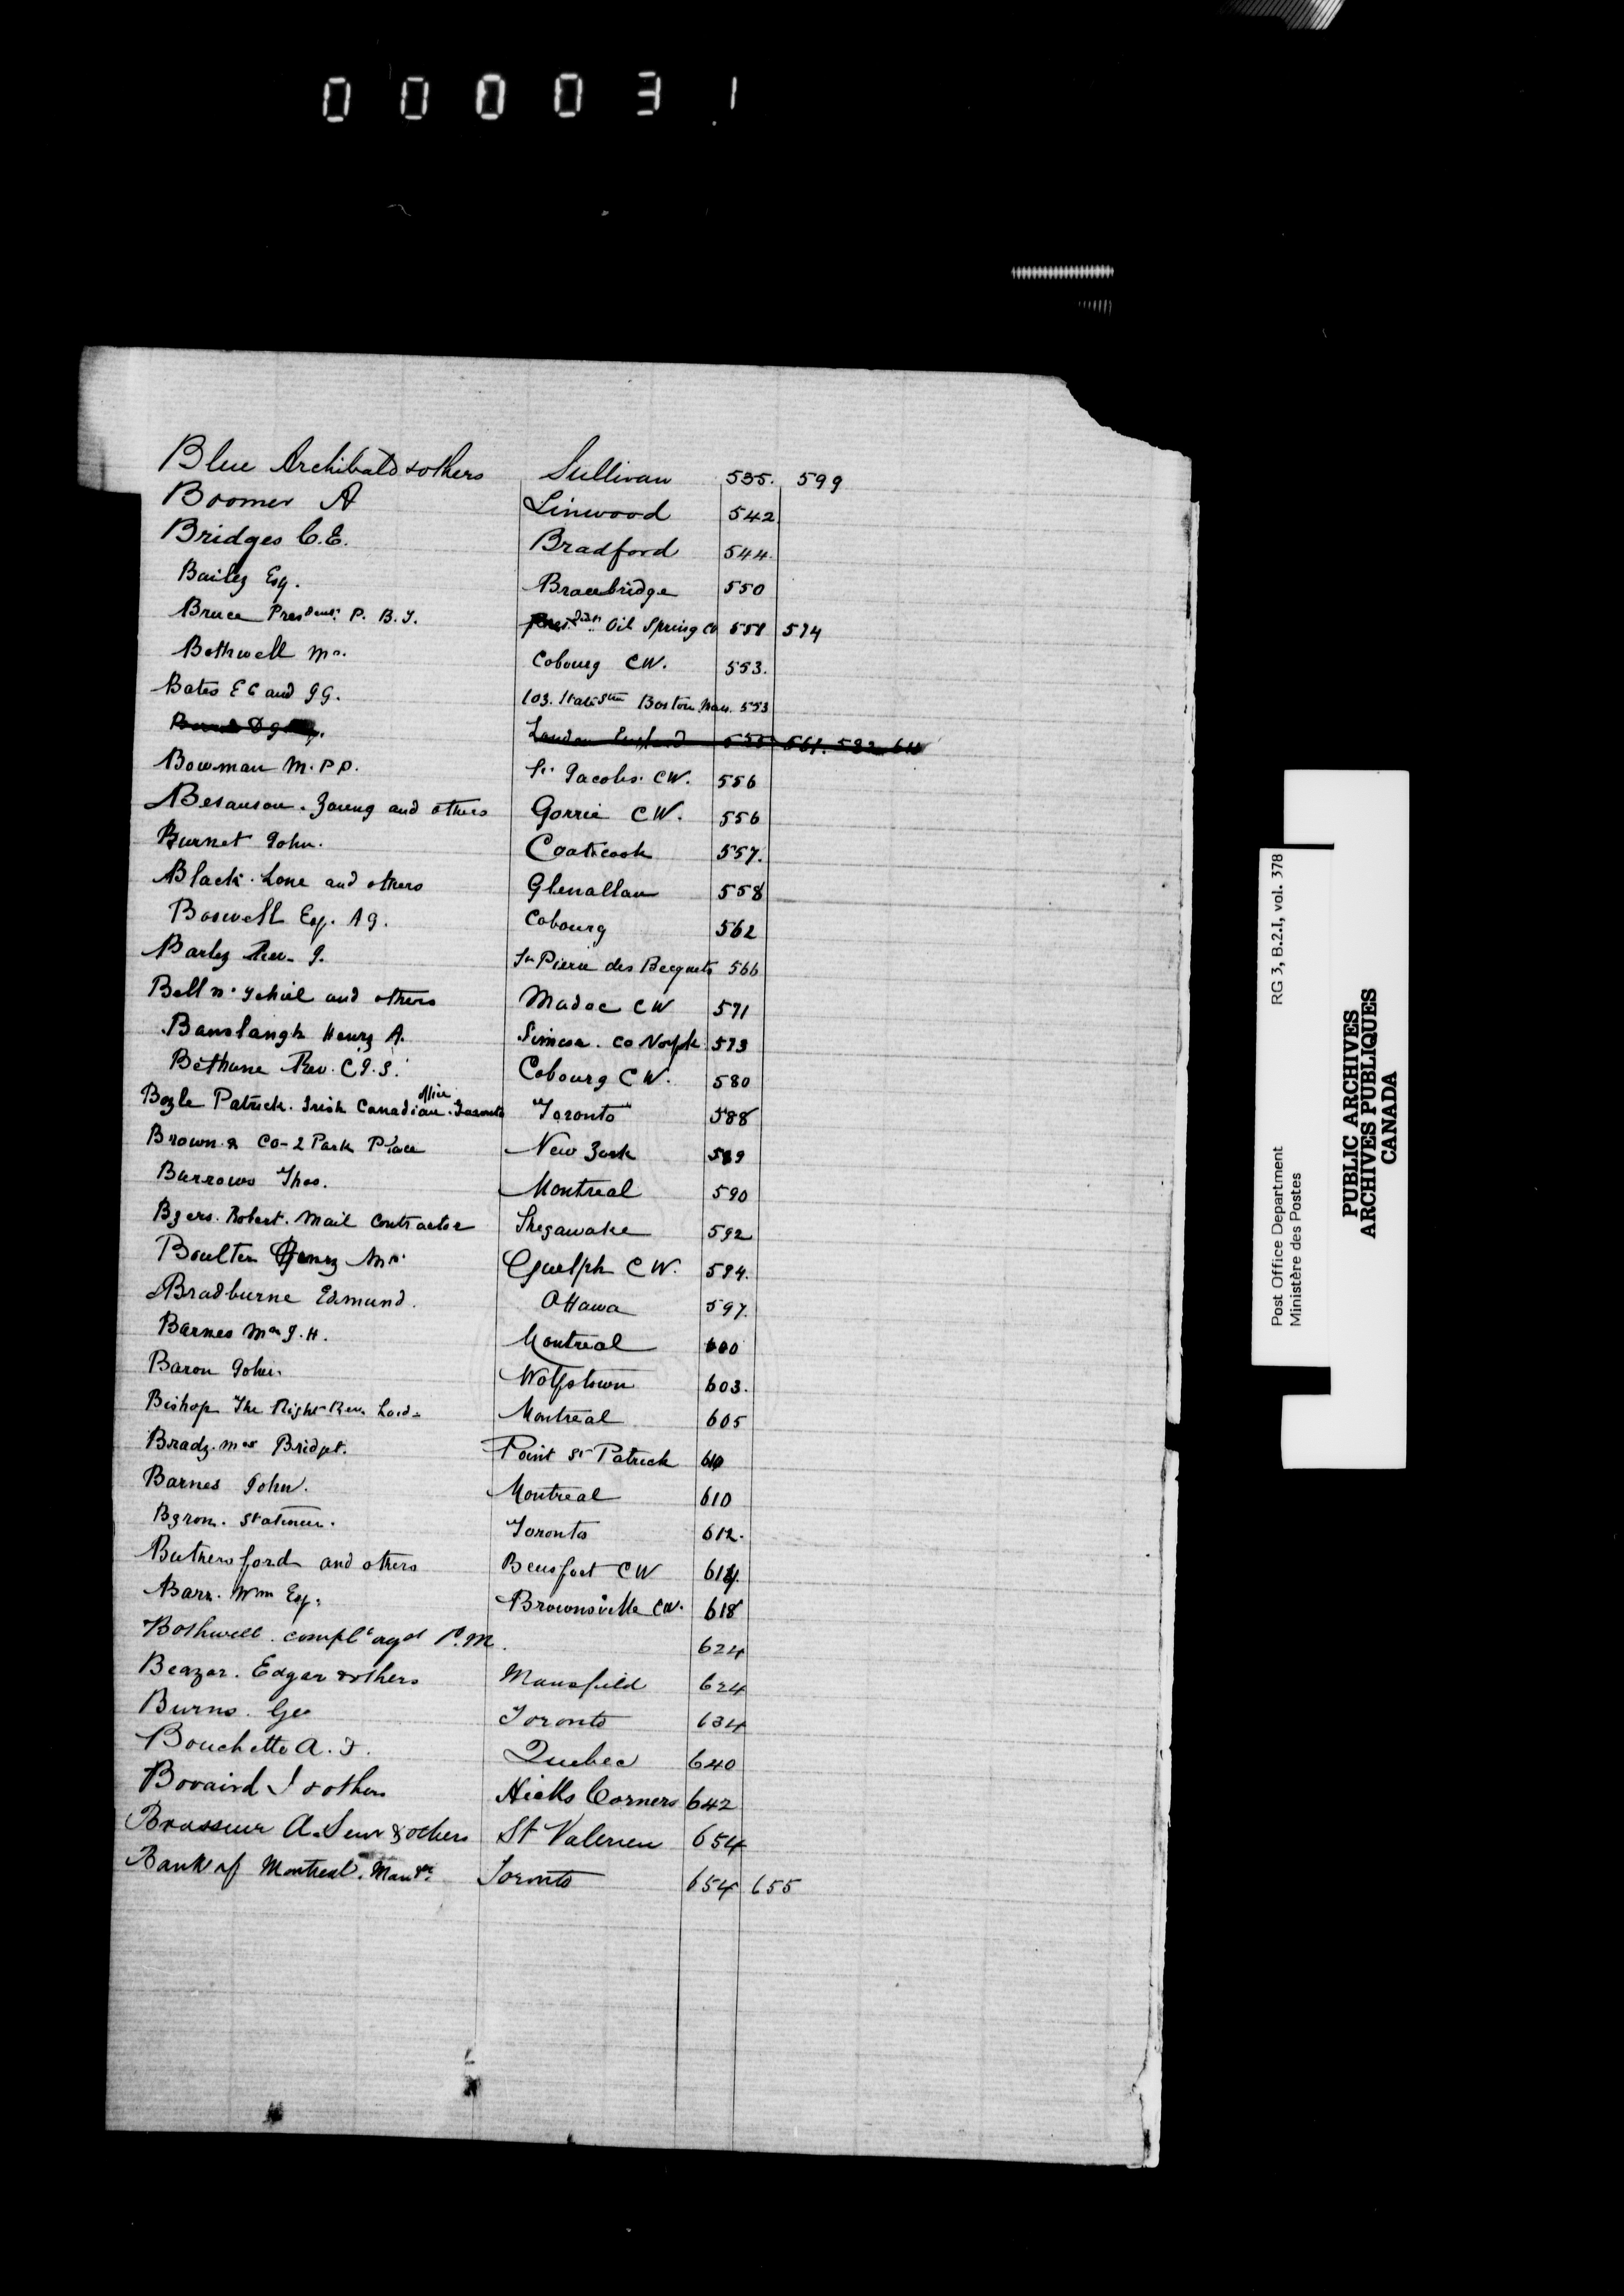 000031
Blue Archibald & others Sullivan 535. 599
Boomer A Linwood 542
Bridges C. E. Bradford 544.
Bailey Esq. Bracebridge 550
Bruce President P. B. I. Oil Spring Co 558 574
Bothwell Mr. Cobourg CW. 553.
Bates E C and J G. 103. State Street Boston Mass. 553
London England 555 561. 582
Bowman M. P P. St. Jacobs. CW. 556
Besanson. Young and others Gorrie CW. 556
Burnet John. Coaticook 557.
Black. Lone and others Glenallan 558
Boswell Esq. A J. Cobourg 562
Barley Rev. J. St Pierre des Becquets 566
Bell and others Madoc CW 571
Banslaugh Henry A. Simcoe. Co Norfolk 573
Bethune Rev. C J. S. Cobourg CW. 580
Boyle Patrick. Irish Canadian Office. Toronto Toronto 588
Brown & Co - 2 Park Place New York 589
Burrows Thos. Montreal 590
Byers. Robert. Mail Contractor Shegawake 592
Boulter Henry Mr. Guelph CW. 594.
Bradburne Edmund. Ottawa 597.
Barnes Mrs J. H. Montreal 600
Baron John. Wolfstown 603.
Bishop The Right Rev. Lord Montreal 605
Brady. Mrs Bridget. Point St Patrick
Barnes John. Montreal 610
Byron. Stationer. Toronto 612.
Buthersford and others Beusfort CW 614.
Barr. Wm Esq. Brownsville CW. 618
Bothwell. complt agst P. M. 624
Beazer. Edgar & others Mansfield 624
Burns. Geo Toronto 634
Bouchette A. J. Quebec 640
Bovaird J & others Hicks Corners 642
Brasseur A. Senr & others St Valerien 654
Bank of Montreal. Manr. Toronto 654 655
RG 3, B.2.I, vol. 378
Post Office Department
Ministère des Postes
PUBLIC ARCHIVES
ARCHIVES PUBLIQUES
CANADA